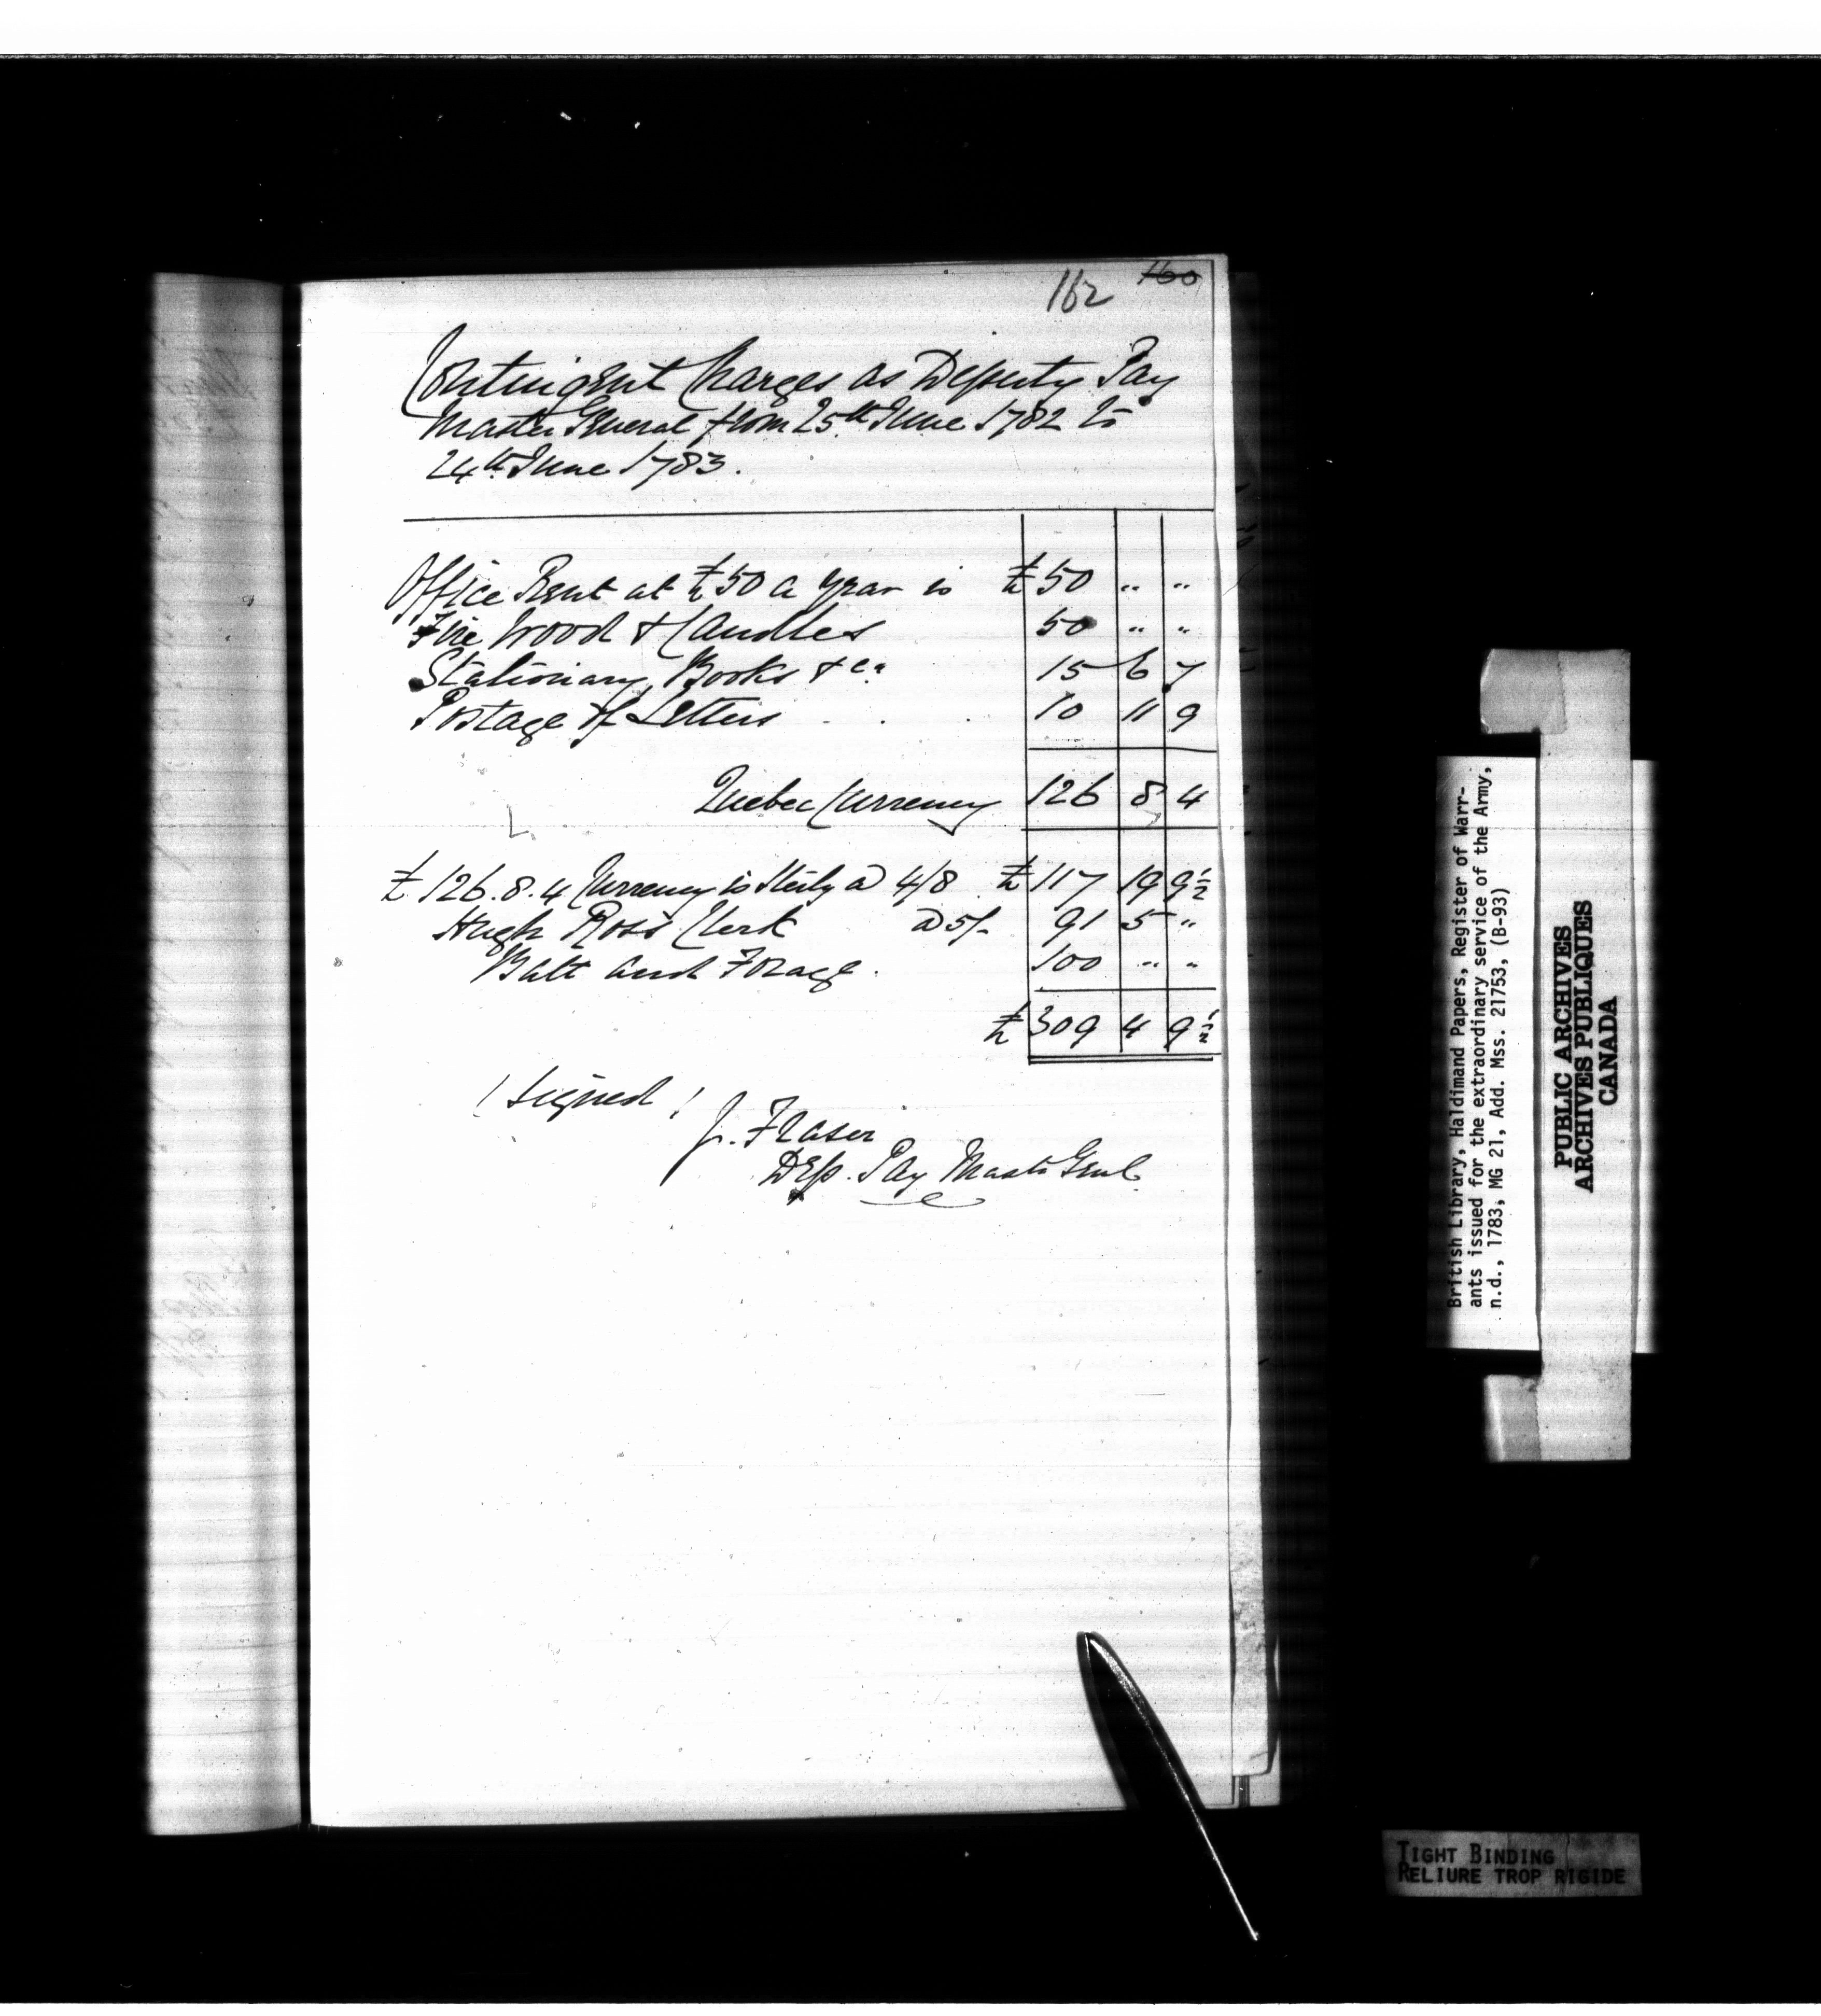 162 160
Contingent Charges as Deputy Pay
Master General from 25th June 1782 to
24th June 1783.
Office Rent at £50 a year is £50 " "
Fire Wood & Candles 50 " "
Stationary, Books & ca 15 6 7
Postage of Letters . . . 10 11 9
Quebec Currency 126 8 4
£126.8.4 Currency is Sterlg @ 4/8 £117 19 9½
Hugh Ross Clerk @ 5/- 91 5 "
Batt and Forage. 100 " "
£309 4 9½
(Signed)
J. Fraser
Dep. Pay Mastr Genl.
British Library, Haldimand Papers, Register of Warr-
ants issued for the extraordinary service of the Army,
n.d., 1783, MG 21, Add. Mss. 21753, (B-93)
PUBLIC ARCHIVES
ARCHIVES PUBLIQUES
CANADA
TIGHT BINDING
RELIURE TROP RIGIDE